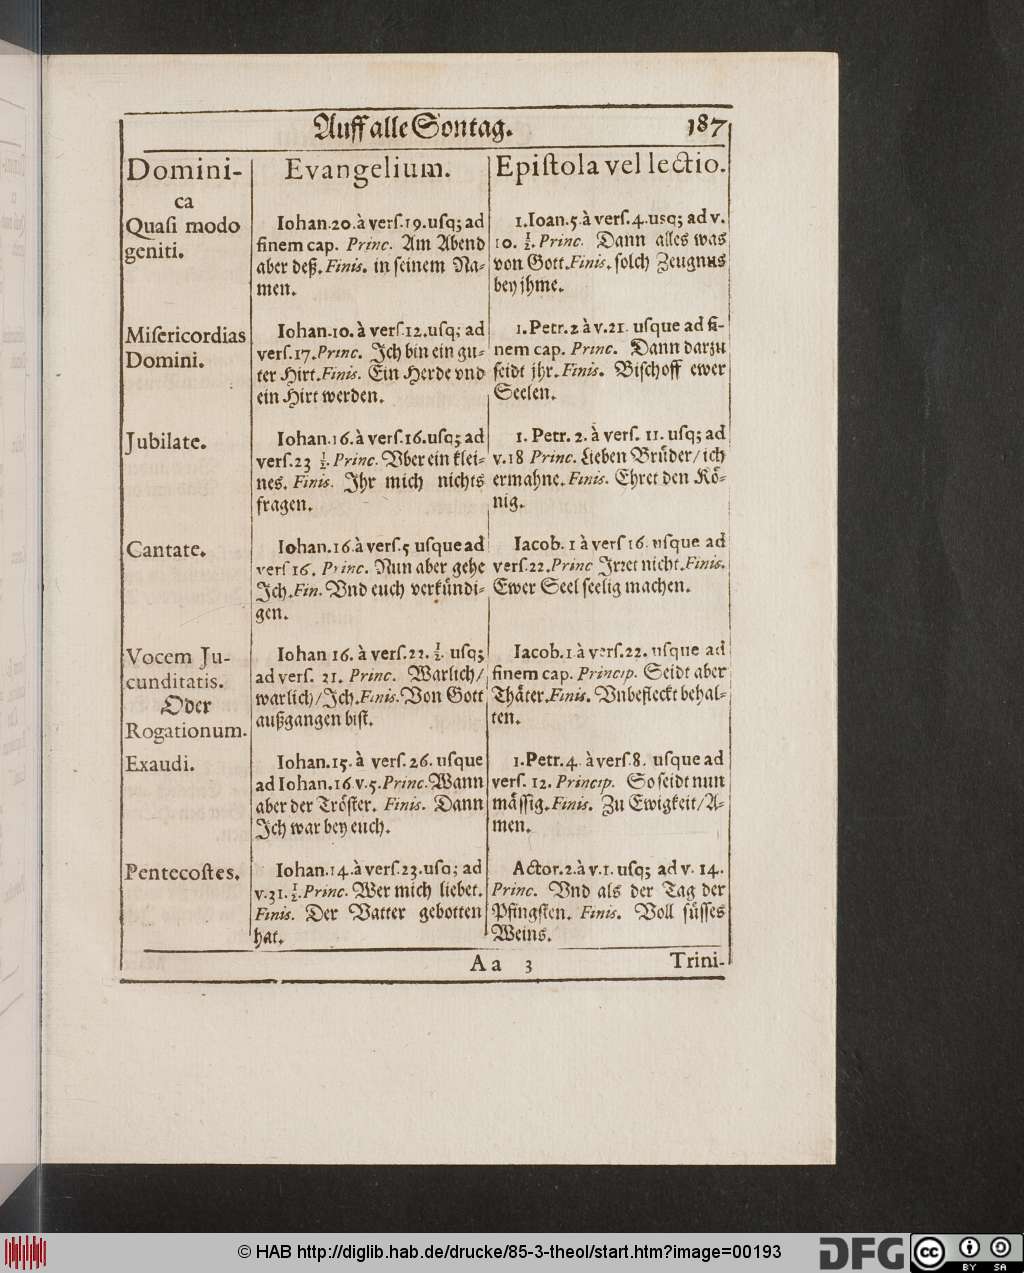 Auff alle Sontag. 187
Domini-
ca
Quaſi modo
geniti.
Evangelium.
Iohan.20.à verſ.19.uſq; ad
finem cap. Princ. Am Abend
aber deß. Finis. in ſeinem Na-
men.
Epiſtola vel lectio.
1.Ioan.5.à verſ.4.usq; ad v.
10. ½. Princ. Dann alles was
von Gott. Finis. ſolch Zeugnus
bey jhme.
Miſericordias
Domini.
Iohan.10. à verſ.12.uſq; ad
verſ.17. Princ. Ich bin ein gu-
ter Hirt. Finis. Ein Herde vnd
ein Hirt werden.
1.Petr.2 à v.21. uſque ad fi-
nem cap. Princ. Dann darzu
ſeidt jhr. Finis. Biſchoff ewer
Seelen.
Jubilate.
Iohan.16.à verſ.16.uſq; ad
verſ.23 ½. Princ. Vber ein klei-
nes. Finis. Ihr mich nichts
fragen.
1. Petr. 2. à verſ. 11. uſq; ad
v.18 Princ. Lieben Bruͤder/ ich
ermahne. Finis. Ehret den Koͤ-
nig.
Cantate.
Iohan.16.à verſ.5 uſque ad
verſ 16. Princ. Nun aber gehe
Ich. Fin. Vnd euch verkuͤndi-
gen.
Iacob. 1 à verſ 16. uſque ad
verſ.22. Princ Irret nicht. Finis.
Ewer Seel ſeelig machen.
Vocem Ju-
cunditatis.
Oder
Rogationum.
Iohan 16. à verſ.22. ½. uſq;
ad verſ. 31. Princ. Warlich/
warlich/ Ich. Finis. Von Gott
außgangen biſt.
Iacob.1 à verſ.22. uſque ad
finem cap. Princip. Seidt aber
Thaͤter. Finis. Vnbefleckt behal-
ten.
Exaudi.
Iohan.15. à verſ. 26. uſque
ad Iohan.16 v.5. Princ. Wann
aber der Troͤſter. Finis. Dann
Ich war bey euch.
1.Petr.4. à verſ.8. uſque ad
verſ. 12. Princip. So ſeidt nun
maͤſſig. Finis. Zu Ewigkeit/ A-
men.
Pentecoſtes.
Iohan.14.à verſ.23.uſq; ad
v.31. ½. Princ. Wer mich liebet.
Finis. Der Vatter gebotten
hat.
Actor.2.à v.1. uſq; ad v. 14.
Princ. Vnd als der Tag der
Pfingſten. Finis. Voll ſuͤſſes
Weins.
Aa 3 Trini-
© HAB http://diglib.hab.de/drucke/85-3-theol/start.htm?image=00193 DFG cc BY SA